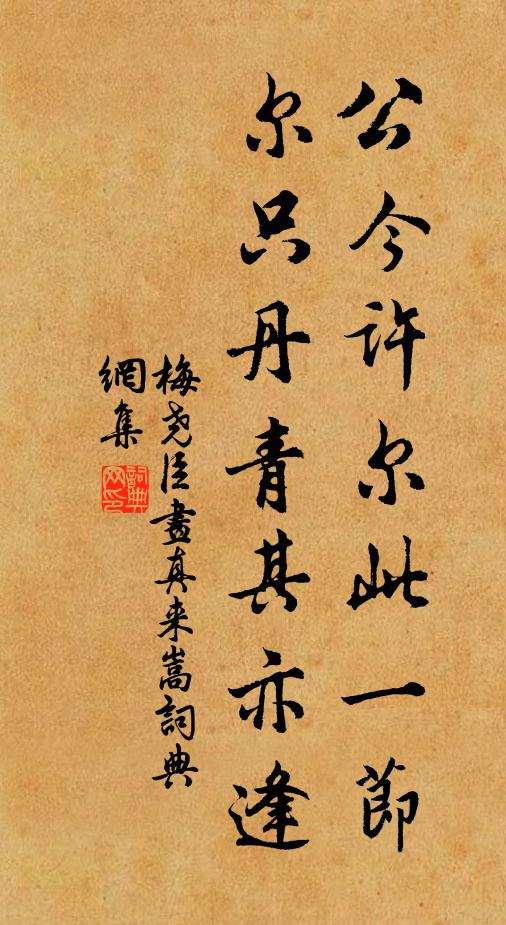 公今许尔此一節
尔只丹青其亦逢
梅尧臣畫真来嵩詞典
網集
詞典網印